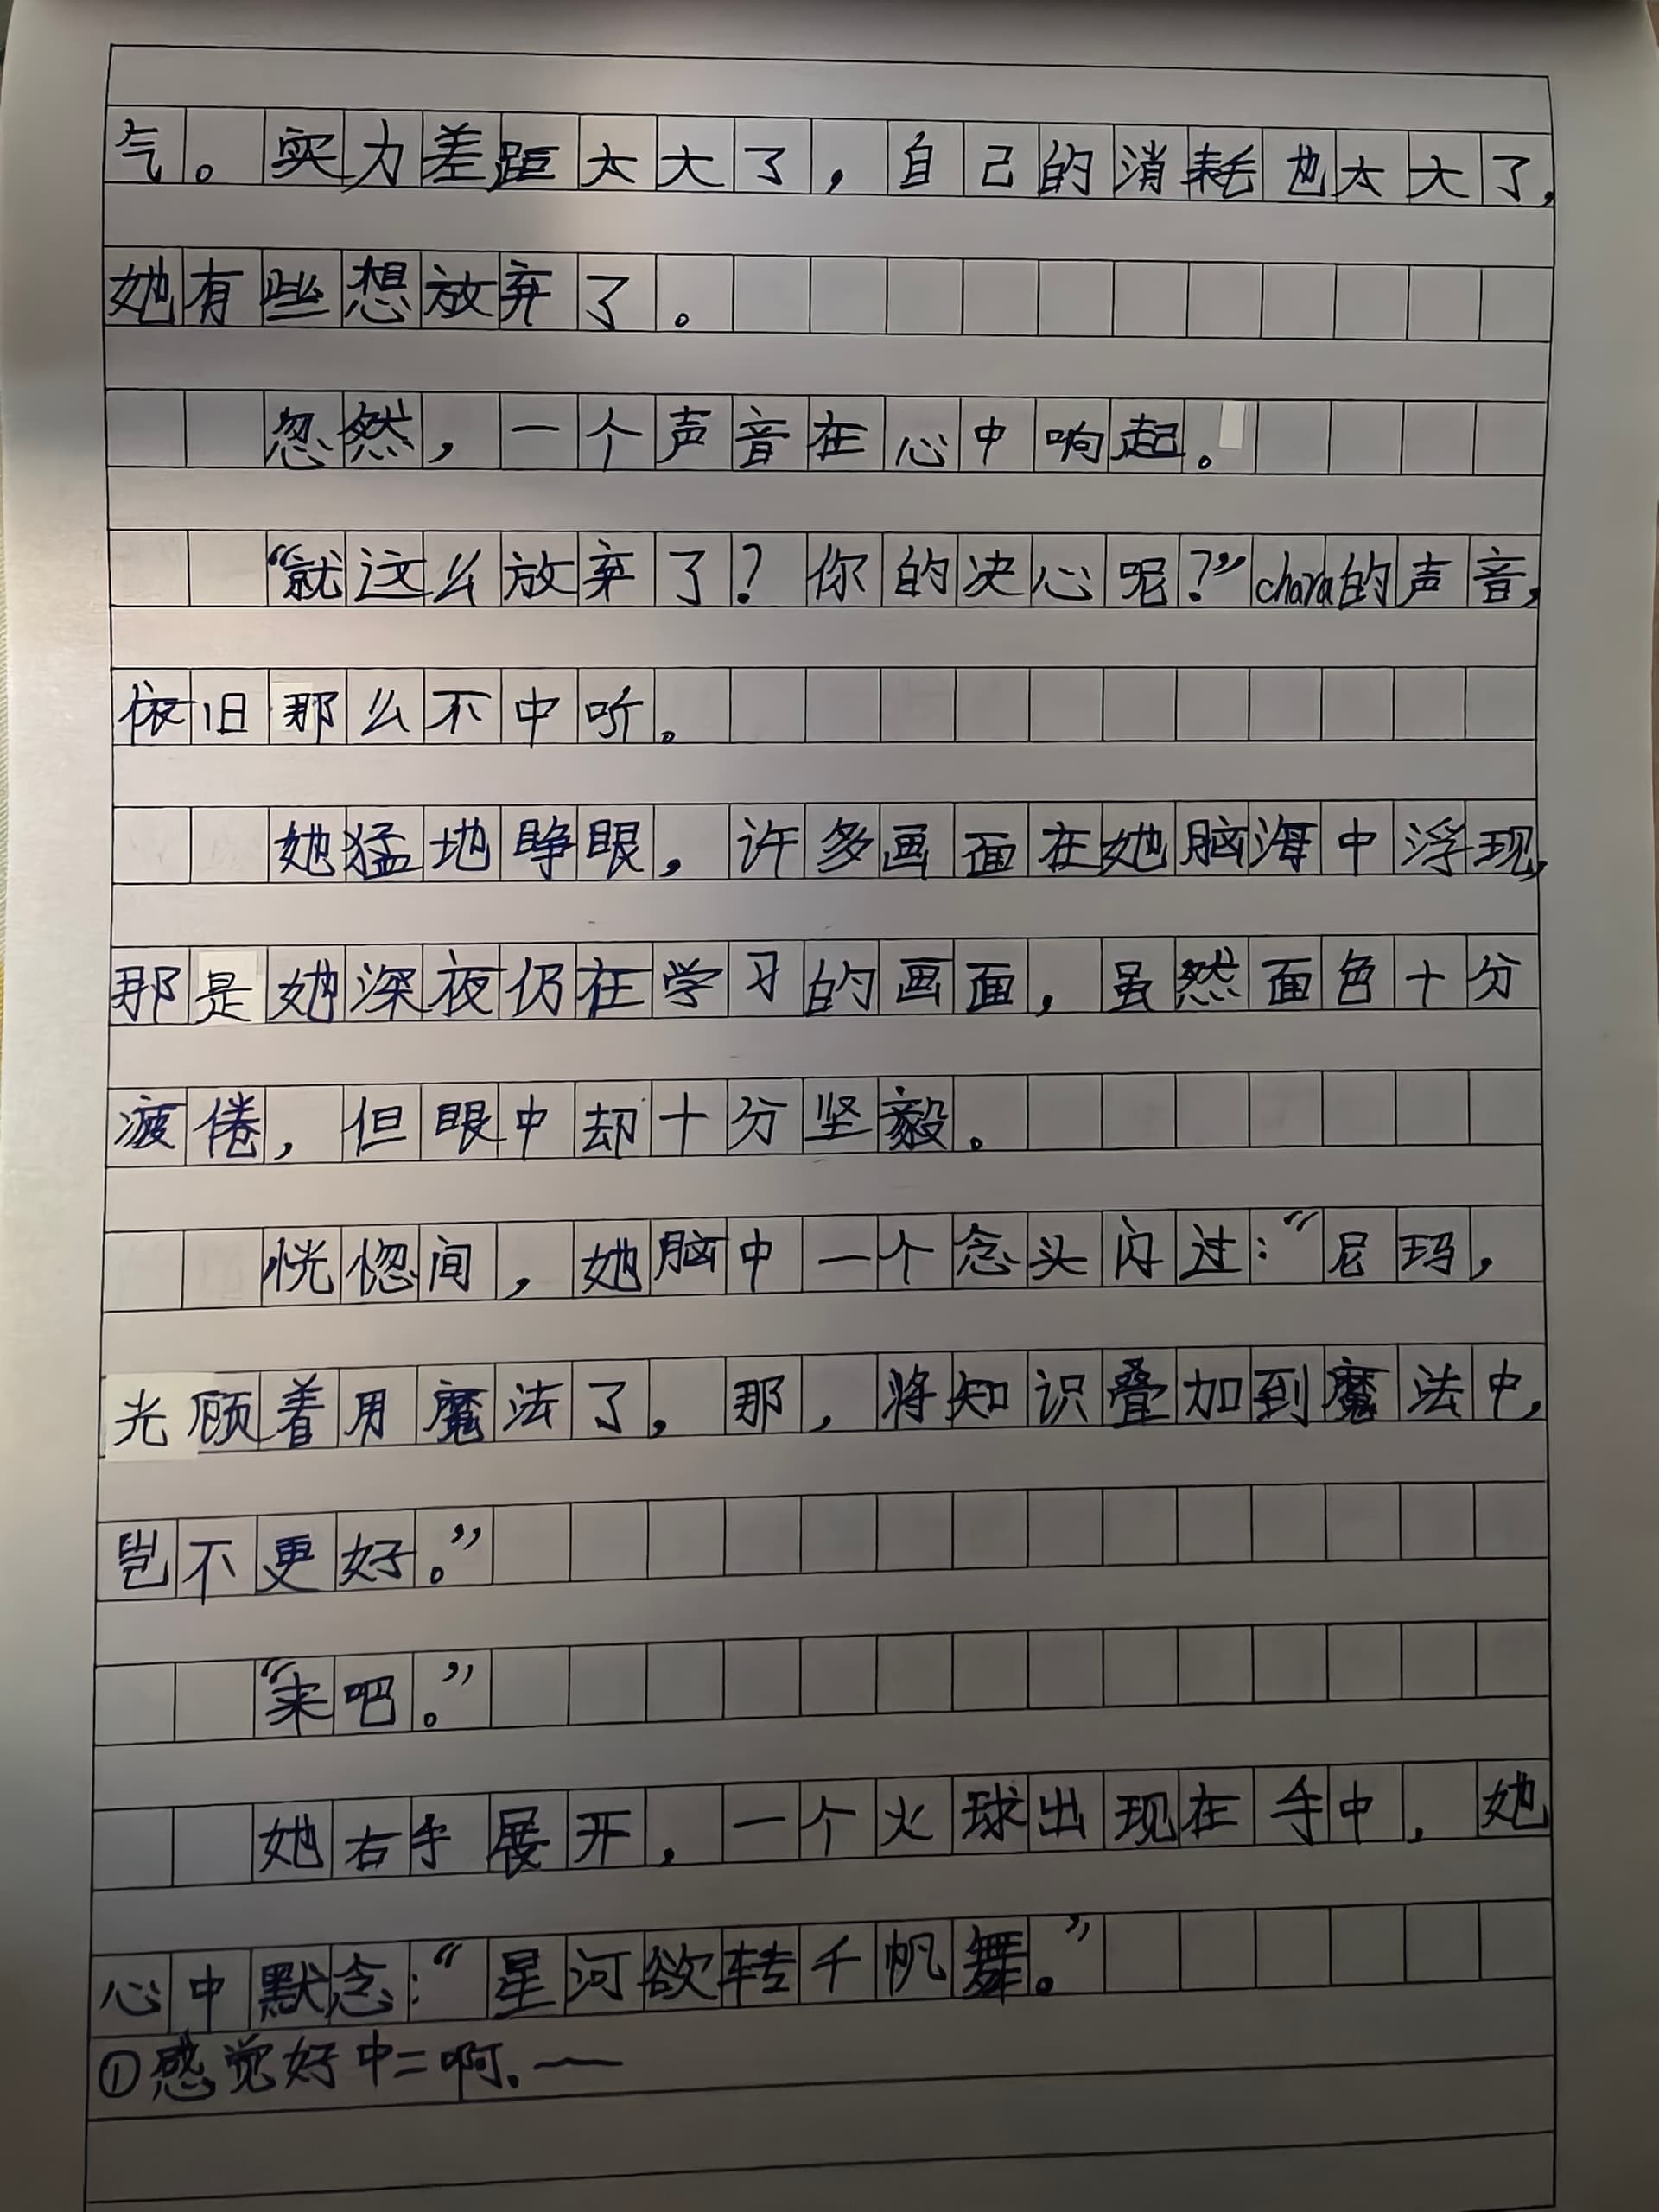 气。实力差距太大了，自己的消耗也太大了，
她有些想放弃了。
忽然，一个声音在心中响起。
“就这么放弃了？你的决心呢？”chara的声音，
依旧那么不中听。
她猛地睁眼，许多画面在她脑海中浮现，
那是她深夜仍在学习的画面，虽然面色十分
疲倦，但眼中却十分坚毅。
恍惚间，她脑中一个念头闪过：“尼玛，
光顾着用魔法了，那，将知识叠加到魔法中，
岂不更好。”
“来吧。”
她右手展开，一个火球出现在手中，她
心中默念：“星河欲转千帆舞。”
①感觉好中二啊.一